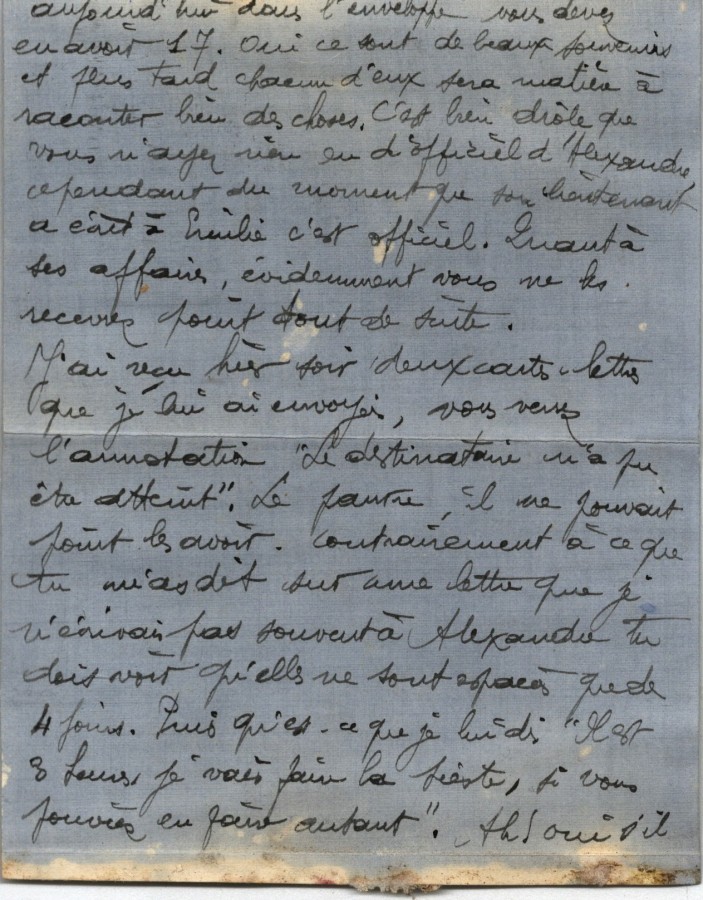 aujourd'hui dans l'enveloppe vous devez
en avoir 17. Oui ce sont de beaux souvenirs
et plus tard chacun d'eux sera matière à
raconter bien des choses. C'est bien drôle que
vous n'ayez rien eu d'officiel d'Alexandre,
cependant du moment que son lieutenant
a écrit à Emilie c'est officiel. Quant à
ses affaires, évidemment vous ne les
recevrez point tout de suite.
J'ai reçu hier soir deux cartes-lettres
que je lui ai envoyées, vous verrez
l'annotation "Le destinataire n'a pu
être atteint". Le pauvre, il ne pouvait
point les avoir. Contrairement à ce que
tu m'as dit sur une lettre que je
n'écrivais pas souvent à Alexandre tu
dois voir qu'elles ne sont espacées que de
4 jours. Puis qu'est-ce que je lui dis "Il est
3 heures je vais faire la sieste, si vous
pouviez en faire autant". Ah! oui s'il